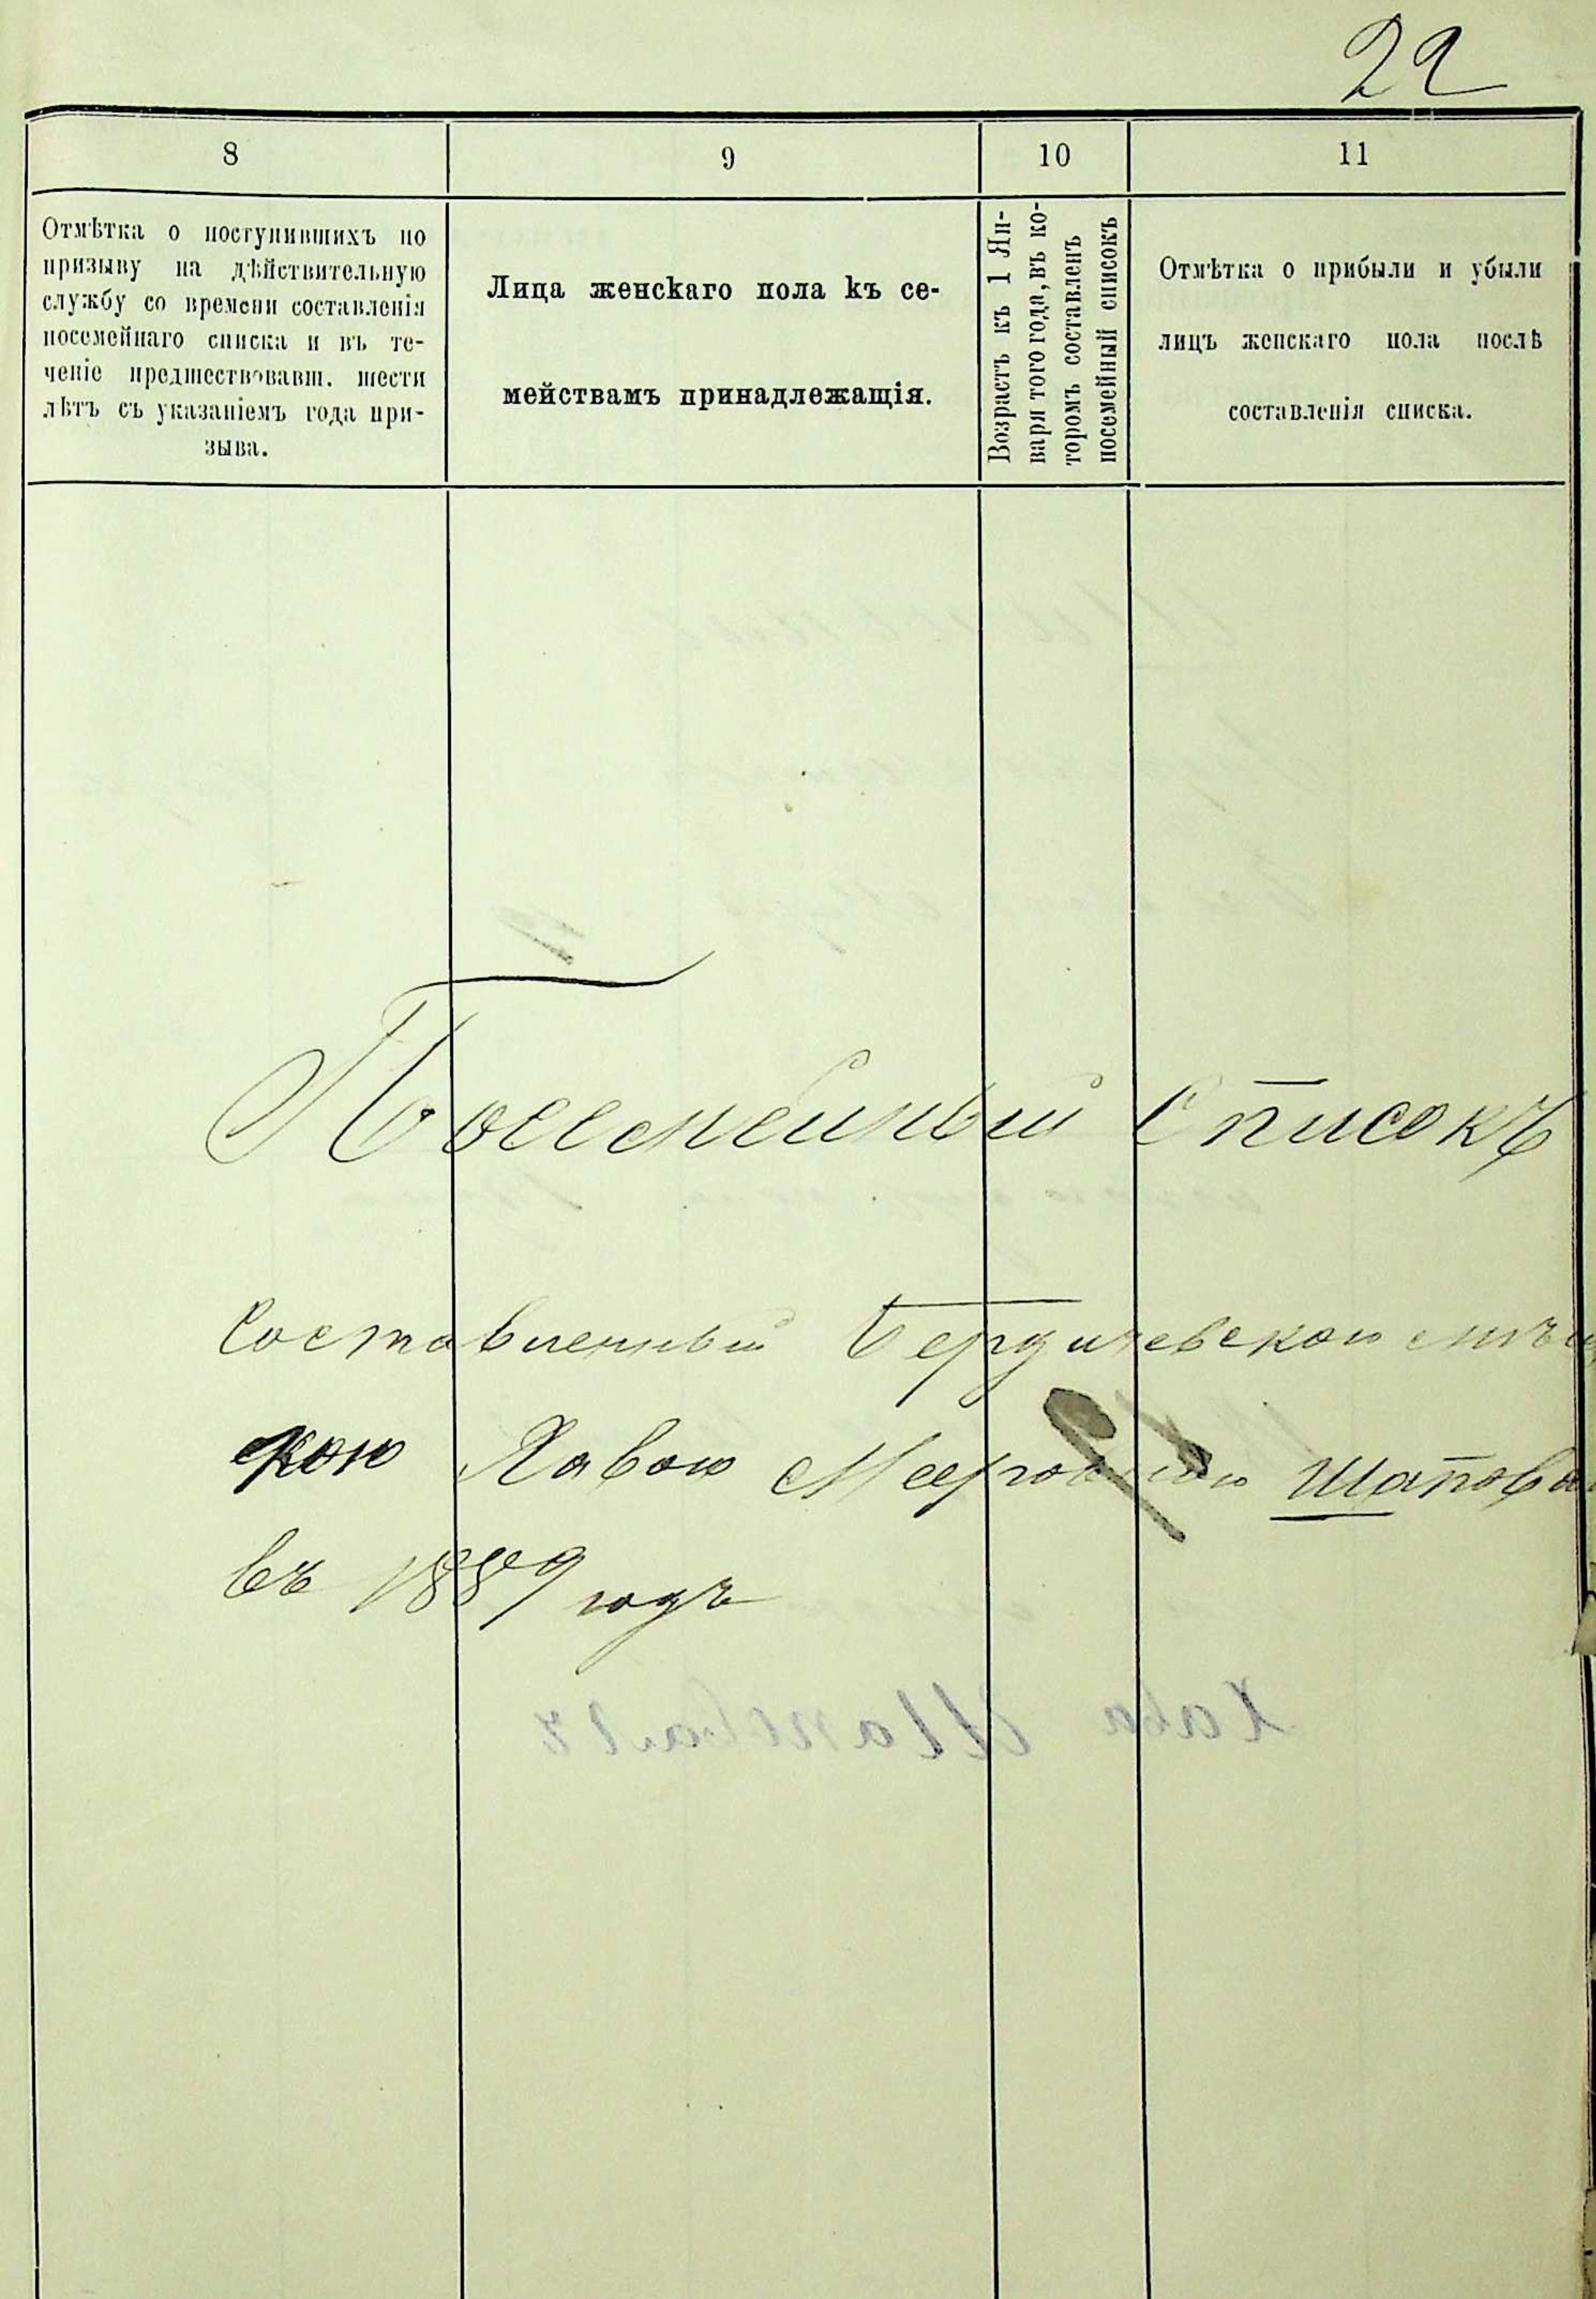 22
8
9
10
11
Отмѣтка о поступившихъ по
призыву на дѣйствительную
службу со времени составленія
посемейнаго списка и въ те-
ченіе предшествовавш. шести
лѣтъ съ указаніемъ года при-
зыва.
Лица женскаго пола къ се-
мействамъ принадлежащія.
Возрастъ къ 1 Ян-
варя того года, въ ко-
торомъ составленъ
посемейный списокъ
Отмѣтка о прибыли и убыли
лицъ женскаго пола послѣ
составленія списка.
Посемейный Списокъ
Составленный Бердичевскою
скою Хавою Мееровною Шапова
въ 1889 годъ
Хава Шаповалъ